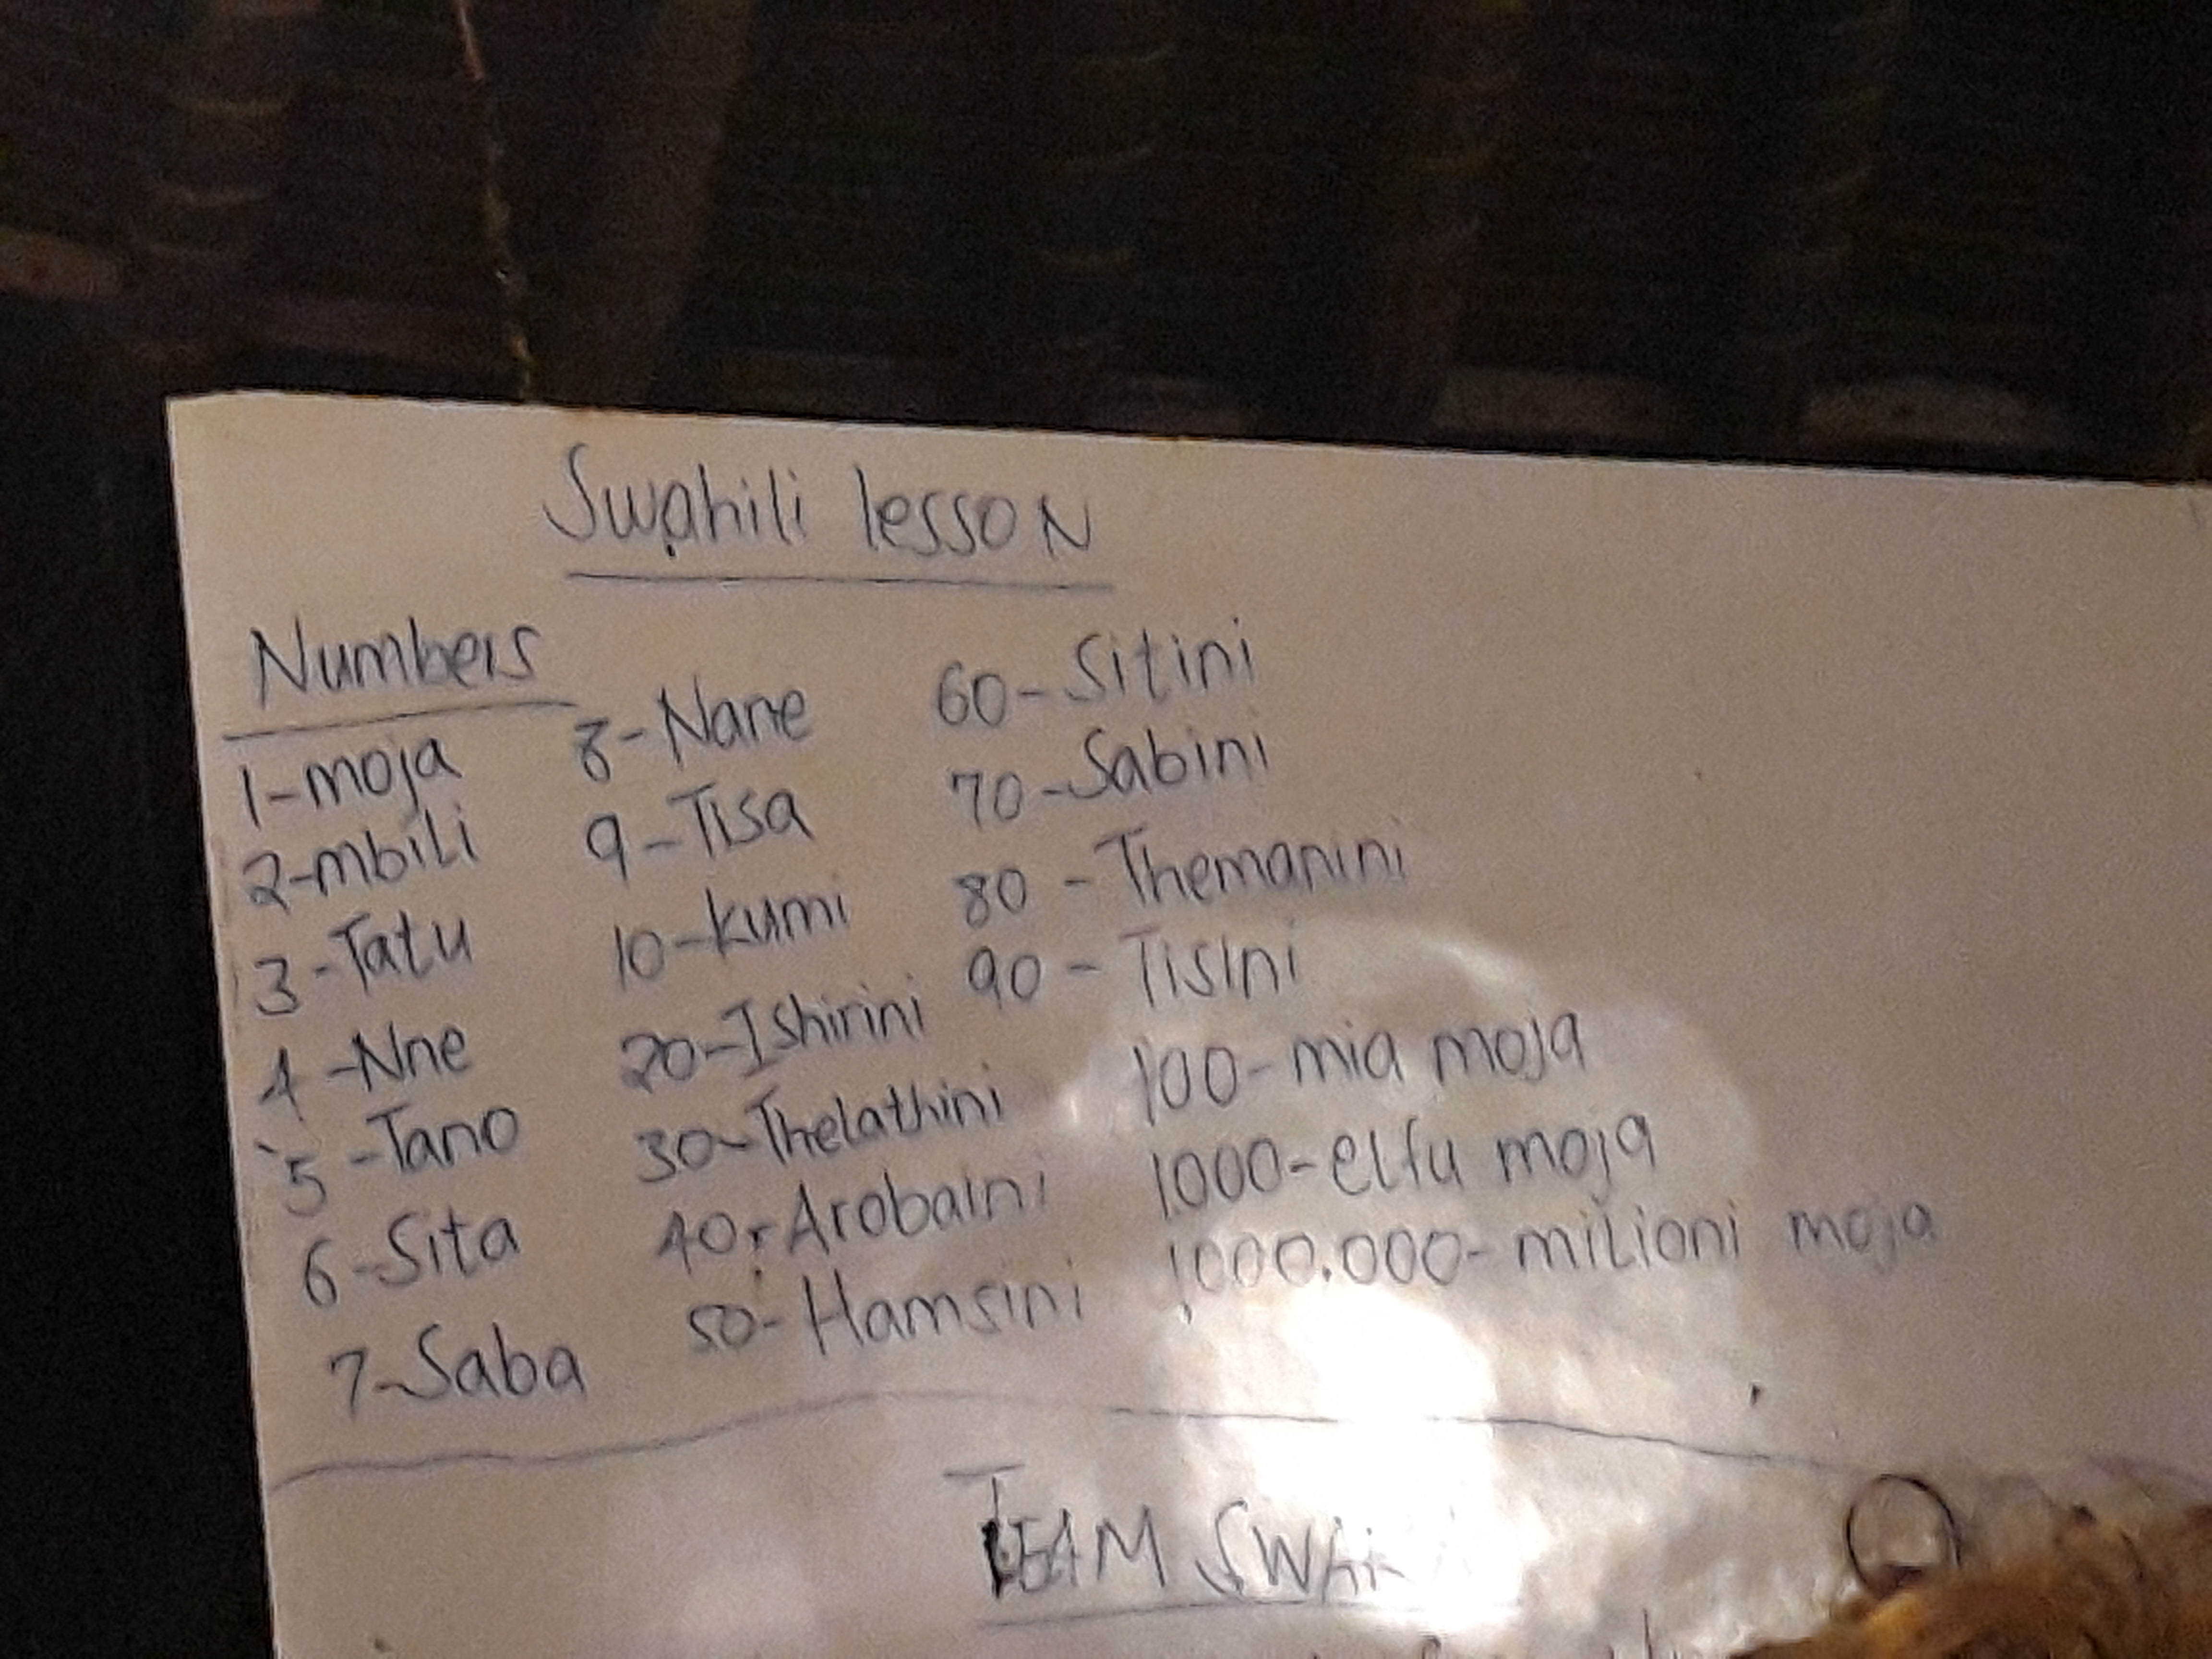 Swahili lesson
Numbers
1-moja
2-mbili
3-Tatu
4-Nne
5-Tano
6-Sita
7-Saba
8-Nane
9-Tisa
10-kumi
20-Ishirini
30-Thelathini
40-Arobaini
50-Hamsini
60-Sitini
70-Sabini
80-Themanini
90-Tisini
100-mia moja
1000-elfu moja
1,000.000-milioni moja
TEAM